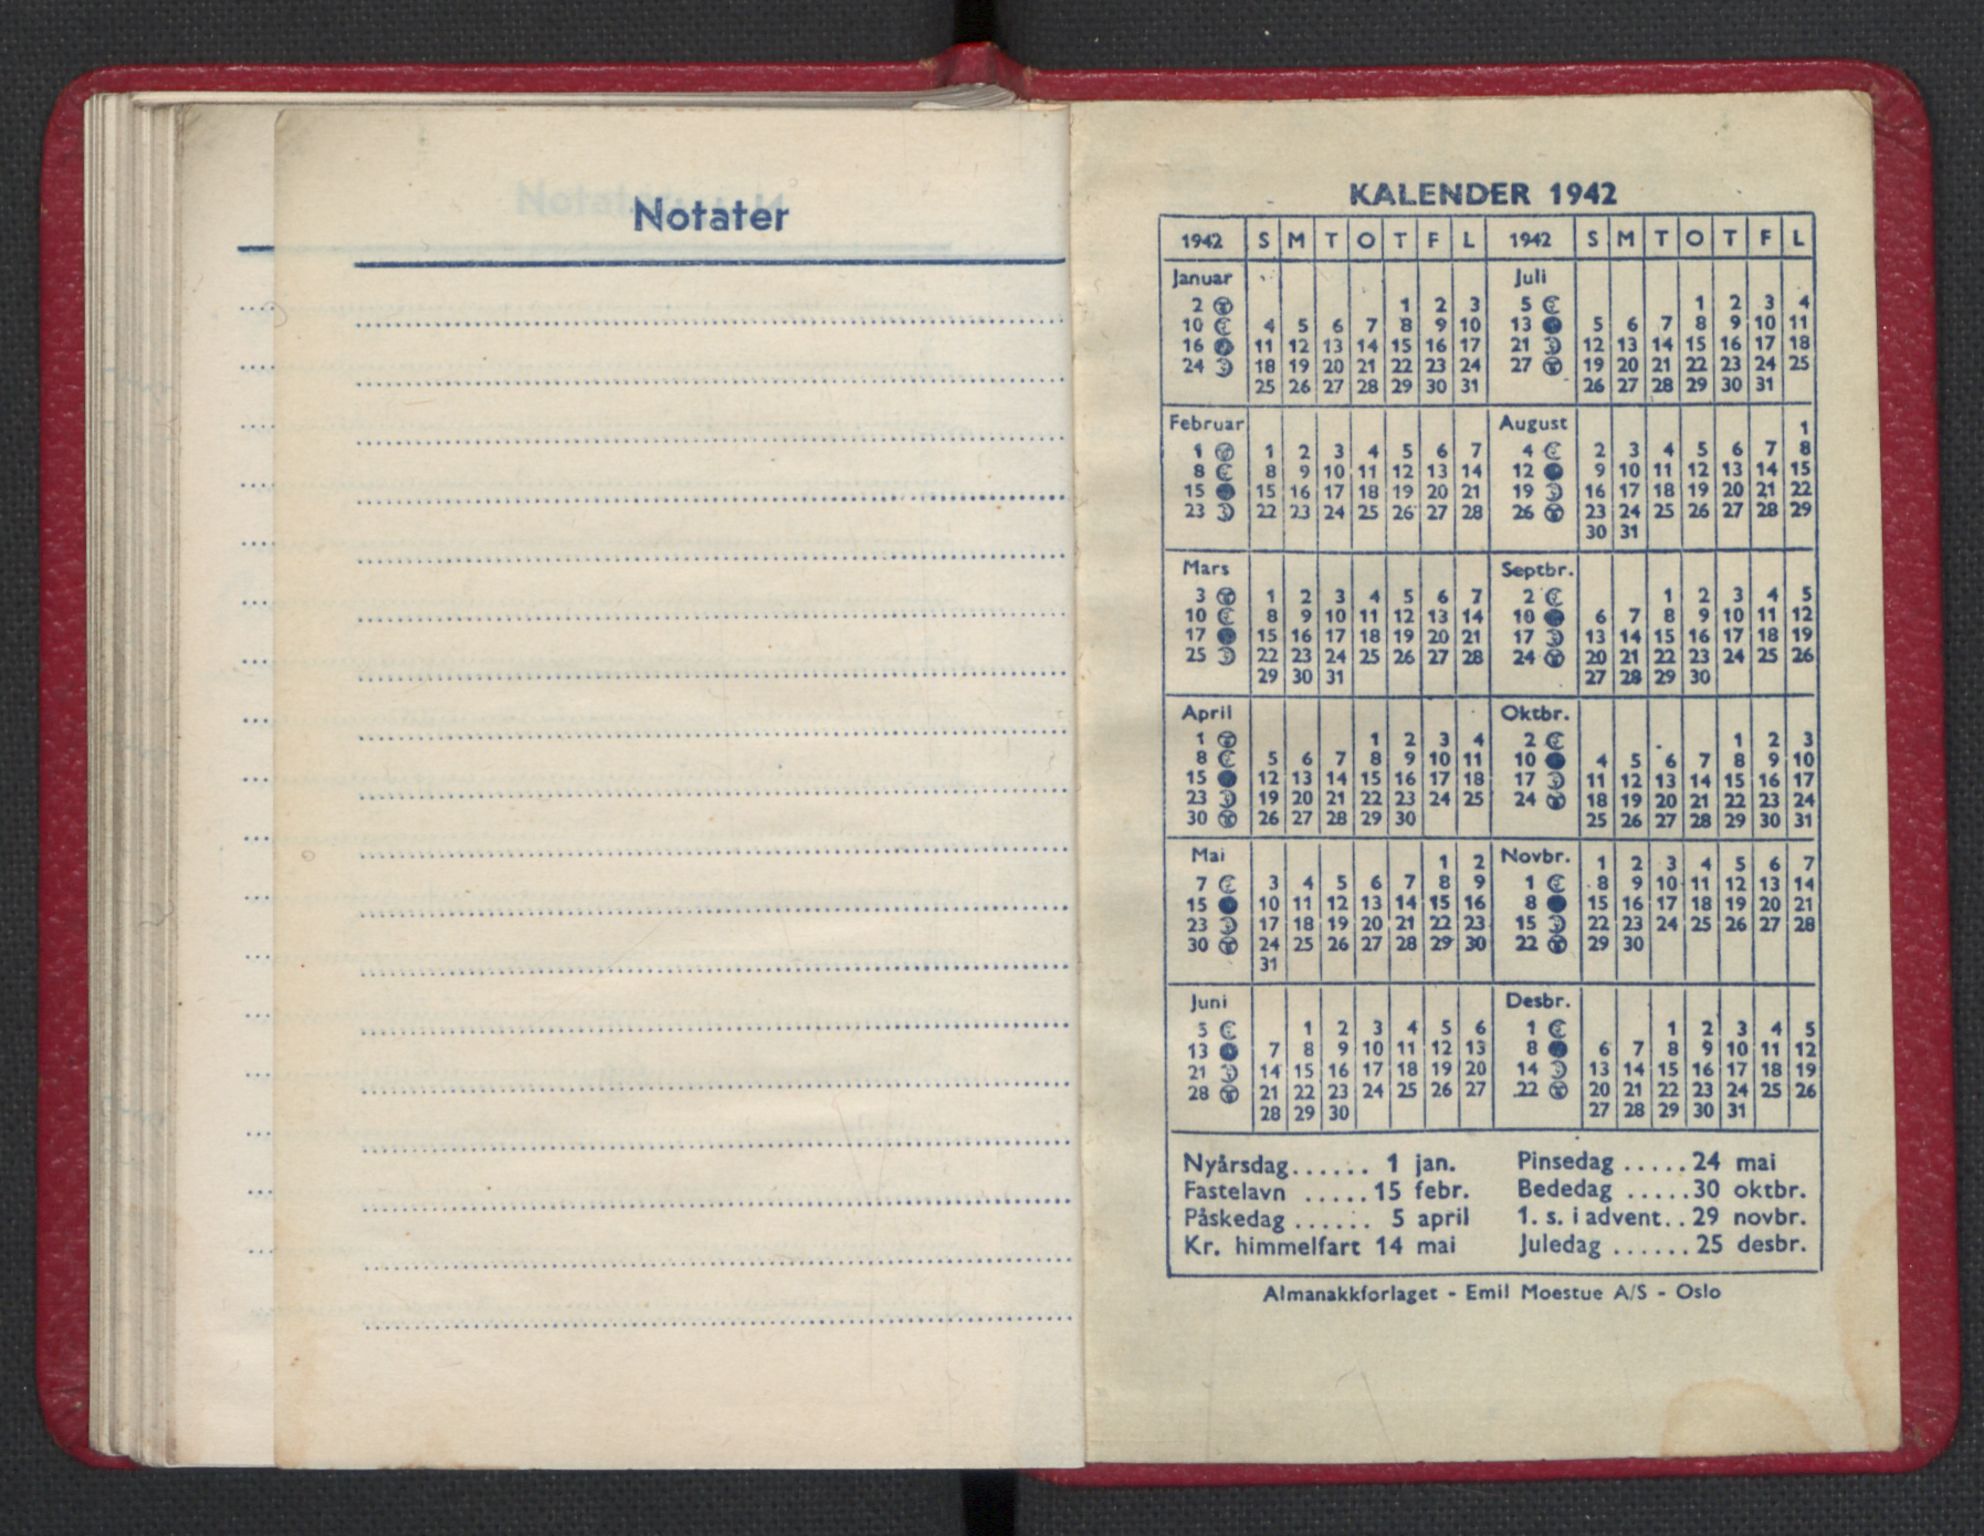 Notater
KALENDER 1942
1942 S M T O T F L 1942 S M T O T F L
Januar Juli
2 1 2 3 5 1 2 3 4
10 4 5 6 7 8 9 10 13 5 6 7 8 9 10 11
16 11 12 13 14 15 16 17 21 12 13 14 15 16 17 18
24 18 19 20 21 22 23 24 27 19 20 21 22 23 24 25
25 26 27 28 29 30 31 26 27 28 29 30 31
Februar August 1
1 1 2 3 4 5 6 7 4 2 3 4 5 6 7 8
8 8 9 10 11 12 13 14 12 9 10 11 12 13 14 15
15 15 16 17 18 19 20 21 19 16 17 18 19 20 21 22
23 22 23 24 25 26 27 28 26 23 24 25 26 27 28 29
30 31
Mars Septbr.
3 1 2 3 4 5 6 7 2 1 2 3 4 5
10 8 9 10 11 12 13 14 10 6 7 8 9 10 11 12
17 15 16 17 18 19 20 21 17 13 14 15 16 17 18 19
25 22 23 24 25 26 27 28 24 20 21 22 23 24 25 26
29 30 31 27 28 29 30
April Oktbr.
1 1 2 3 4 2 1 2 3
8 5 6 7 8 9 10 11 10 4 5 6 7 8 9 10
15 12 13 14 15 16 17 18 17 11 12 13 14 15 16 17
23 19 20 21 22 23 24 25 24 18 19 20 21 22 23 24
30 26 27 28 29 30 25 26 27 28 29 30 31
Mai 1 2 Novbr. 1 2 3 4 5 6 7
7 3 4 5 6 7 8 9 1 8 9 10 11 12 13 14
15 10 11 12 13 14 15 16 8 15 16 17 18 19 20 21
23 17 18 19 20 21 22 23 15 22 23 24 25 26 27 28
30 24 25 26 27 28 29 30 22 29 30
31
Juni Desbr.
5 1 2 3 4 5 6 1 1 2 3 4 5
13 7 8 9 10 11 12 13 8 6 7 8 9 10 11 12
21 14 15 16 17 18 19 20 14 13 14 15 16 17 18 19
28 21 22 23 24 25 26 27 22 20 21 22 23 24 25 26
28 29 30 27 28 29 30 31
Nyårsdag...... 1 jan. Pinsedag .....24 mai
Fastelavn .....15 febr. Bededag .....30 oktbr.
Påskedag ...... 5 april 1. s. i advent..29 novbr.
Kr. himmelfart 14 mai Juledag ......25 desbr.
Almanakkforlaget - Emil Moestue A/S - Oslo